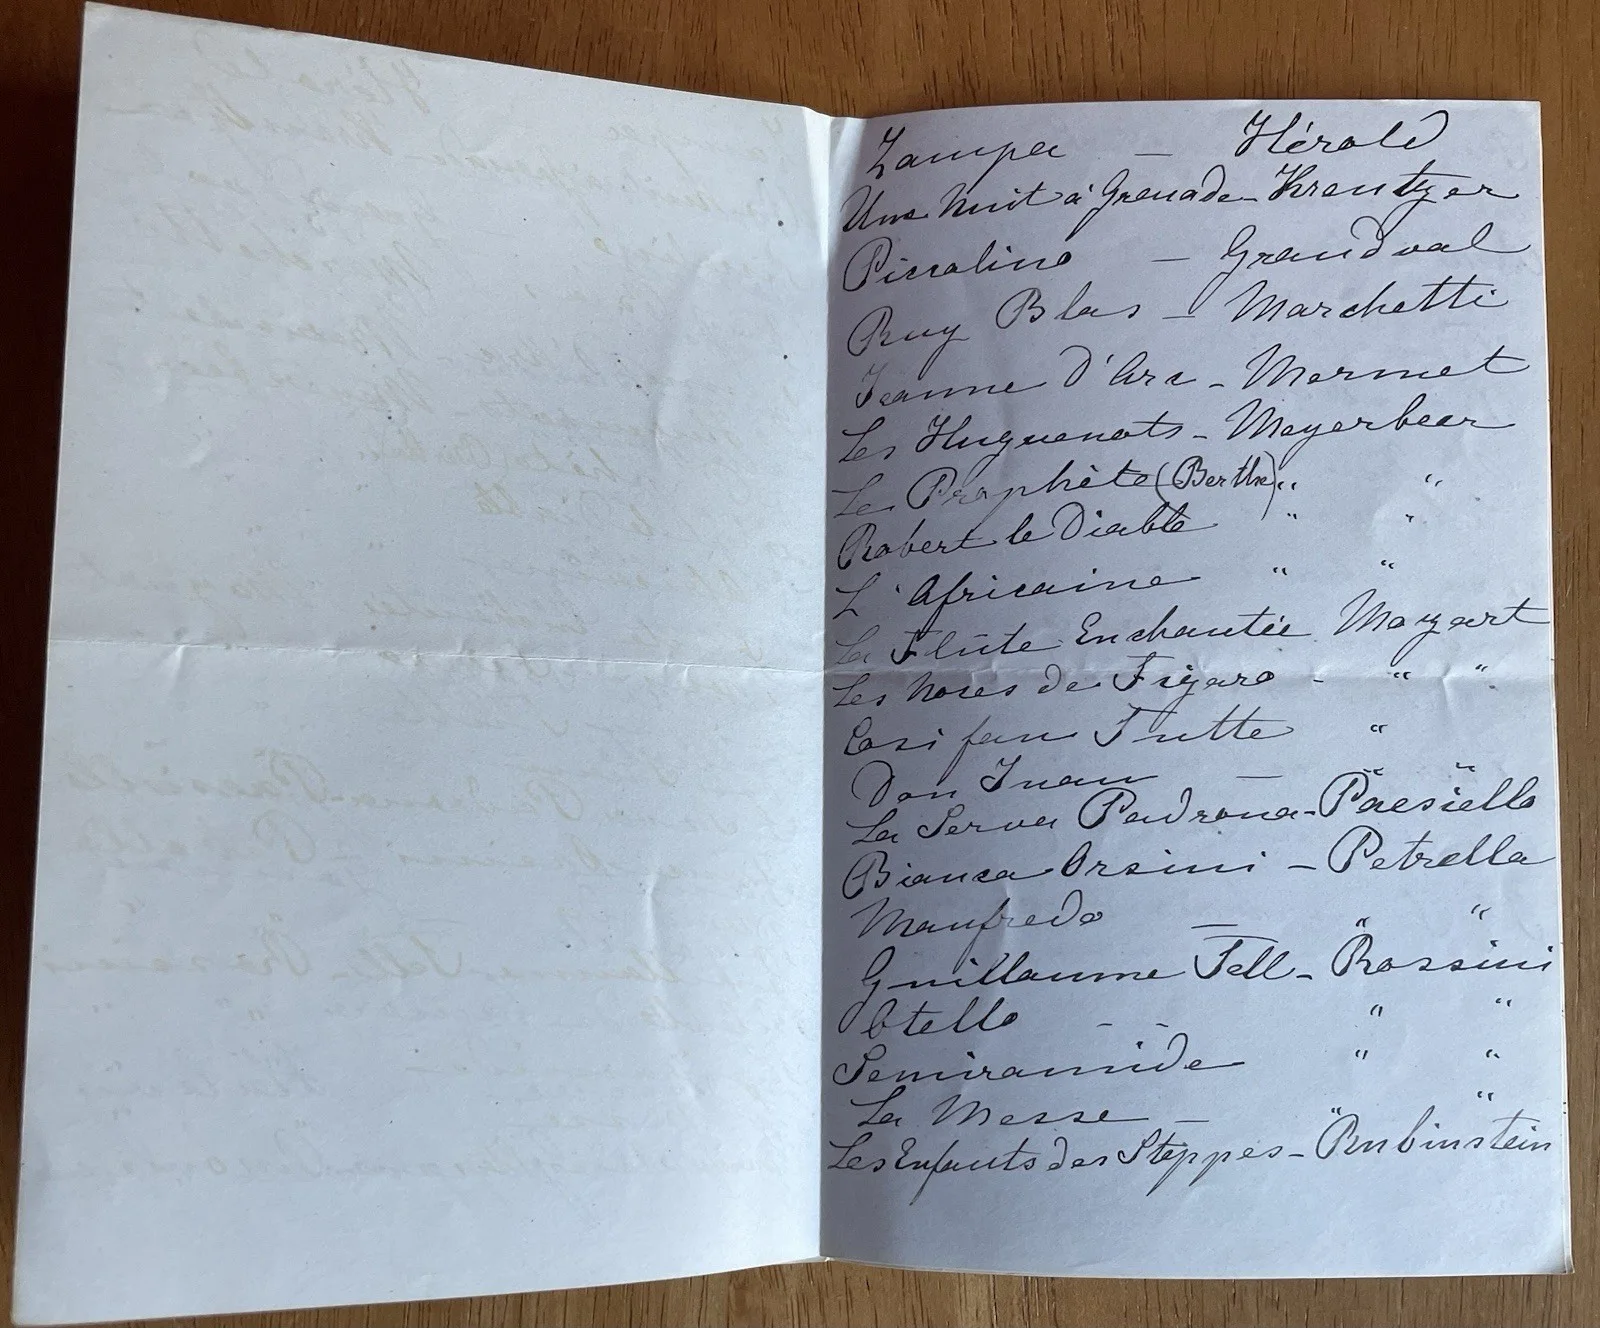 Zampa — Hérold
Une Nuit à Grenade - Kreutzer
Piccolino — Grandval
Ruy Blas — Marchetti
Jeanne D'Arc - Mermet
Les Huguenots - Meyerbeer
Le Prophète (Berthe) " "
Robert le Diable " "
L'Africaine " "
La Flûte Enchantée Mozart
Les Noces de Figaro - " "
Cosi fan Tutte "
Don Juan — " "
La Serva Padrona - Paesiello
Bianca Orsini - Petrella
Manfredo — " "
Guillaume Tell - Rossini
Otello - - " "
Semiramide " "
La Messe — " "
Les Enfants des Steppes - Rubinstein